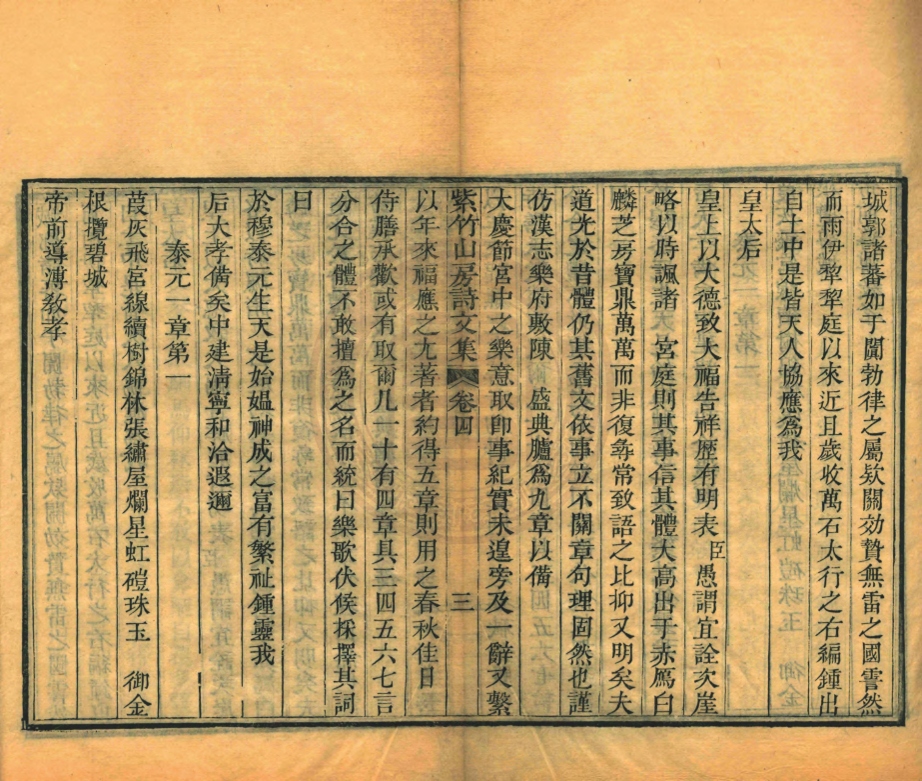 城郭諸蕃如于闐勃律之屬欵關効贄無雷之國霅然
而雨伊犂犂庭以來近且歲收萬石太行之右編鍾出
自土中是皆天人協應爲我
皇太后
皇上以大德致大福告祥歷有明表臣愚謂宜詮次崖
略以時諷諸 宮庭則其事信其體大高出于赤鴈白
麟芝房寶鼎萬萬而非復尋常致語之比抑又明矣夫
道光於昔體仍其舊文依事立不關章句理固然也謹
仿漢志樂府敷陳 盛典臚爲九章以備
大慶節宮中之樂意取卽事紀實未遑旁及一辭又繫
紫竹山房詩文集 卷四 三
以年來福應之尤著者約得五章則用之春秋佳日
侍膳承歡或有取爾凡一十有四章具三四五六七言
分合之體不敢擅爲之名而統曰樂歌伏俟採擇其詞
曰
於穆泰元生天是始媼神成之富有繁祉鍾靈我
后大孝備矣中建淸寧和洽遐邇
泰元一章第一
葭灰飛宮線續樹錦林張繡屋爛星虹磑珠玉 御金
根攬碧城
帝前導溥敎孝